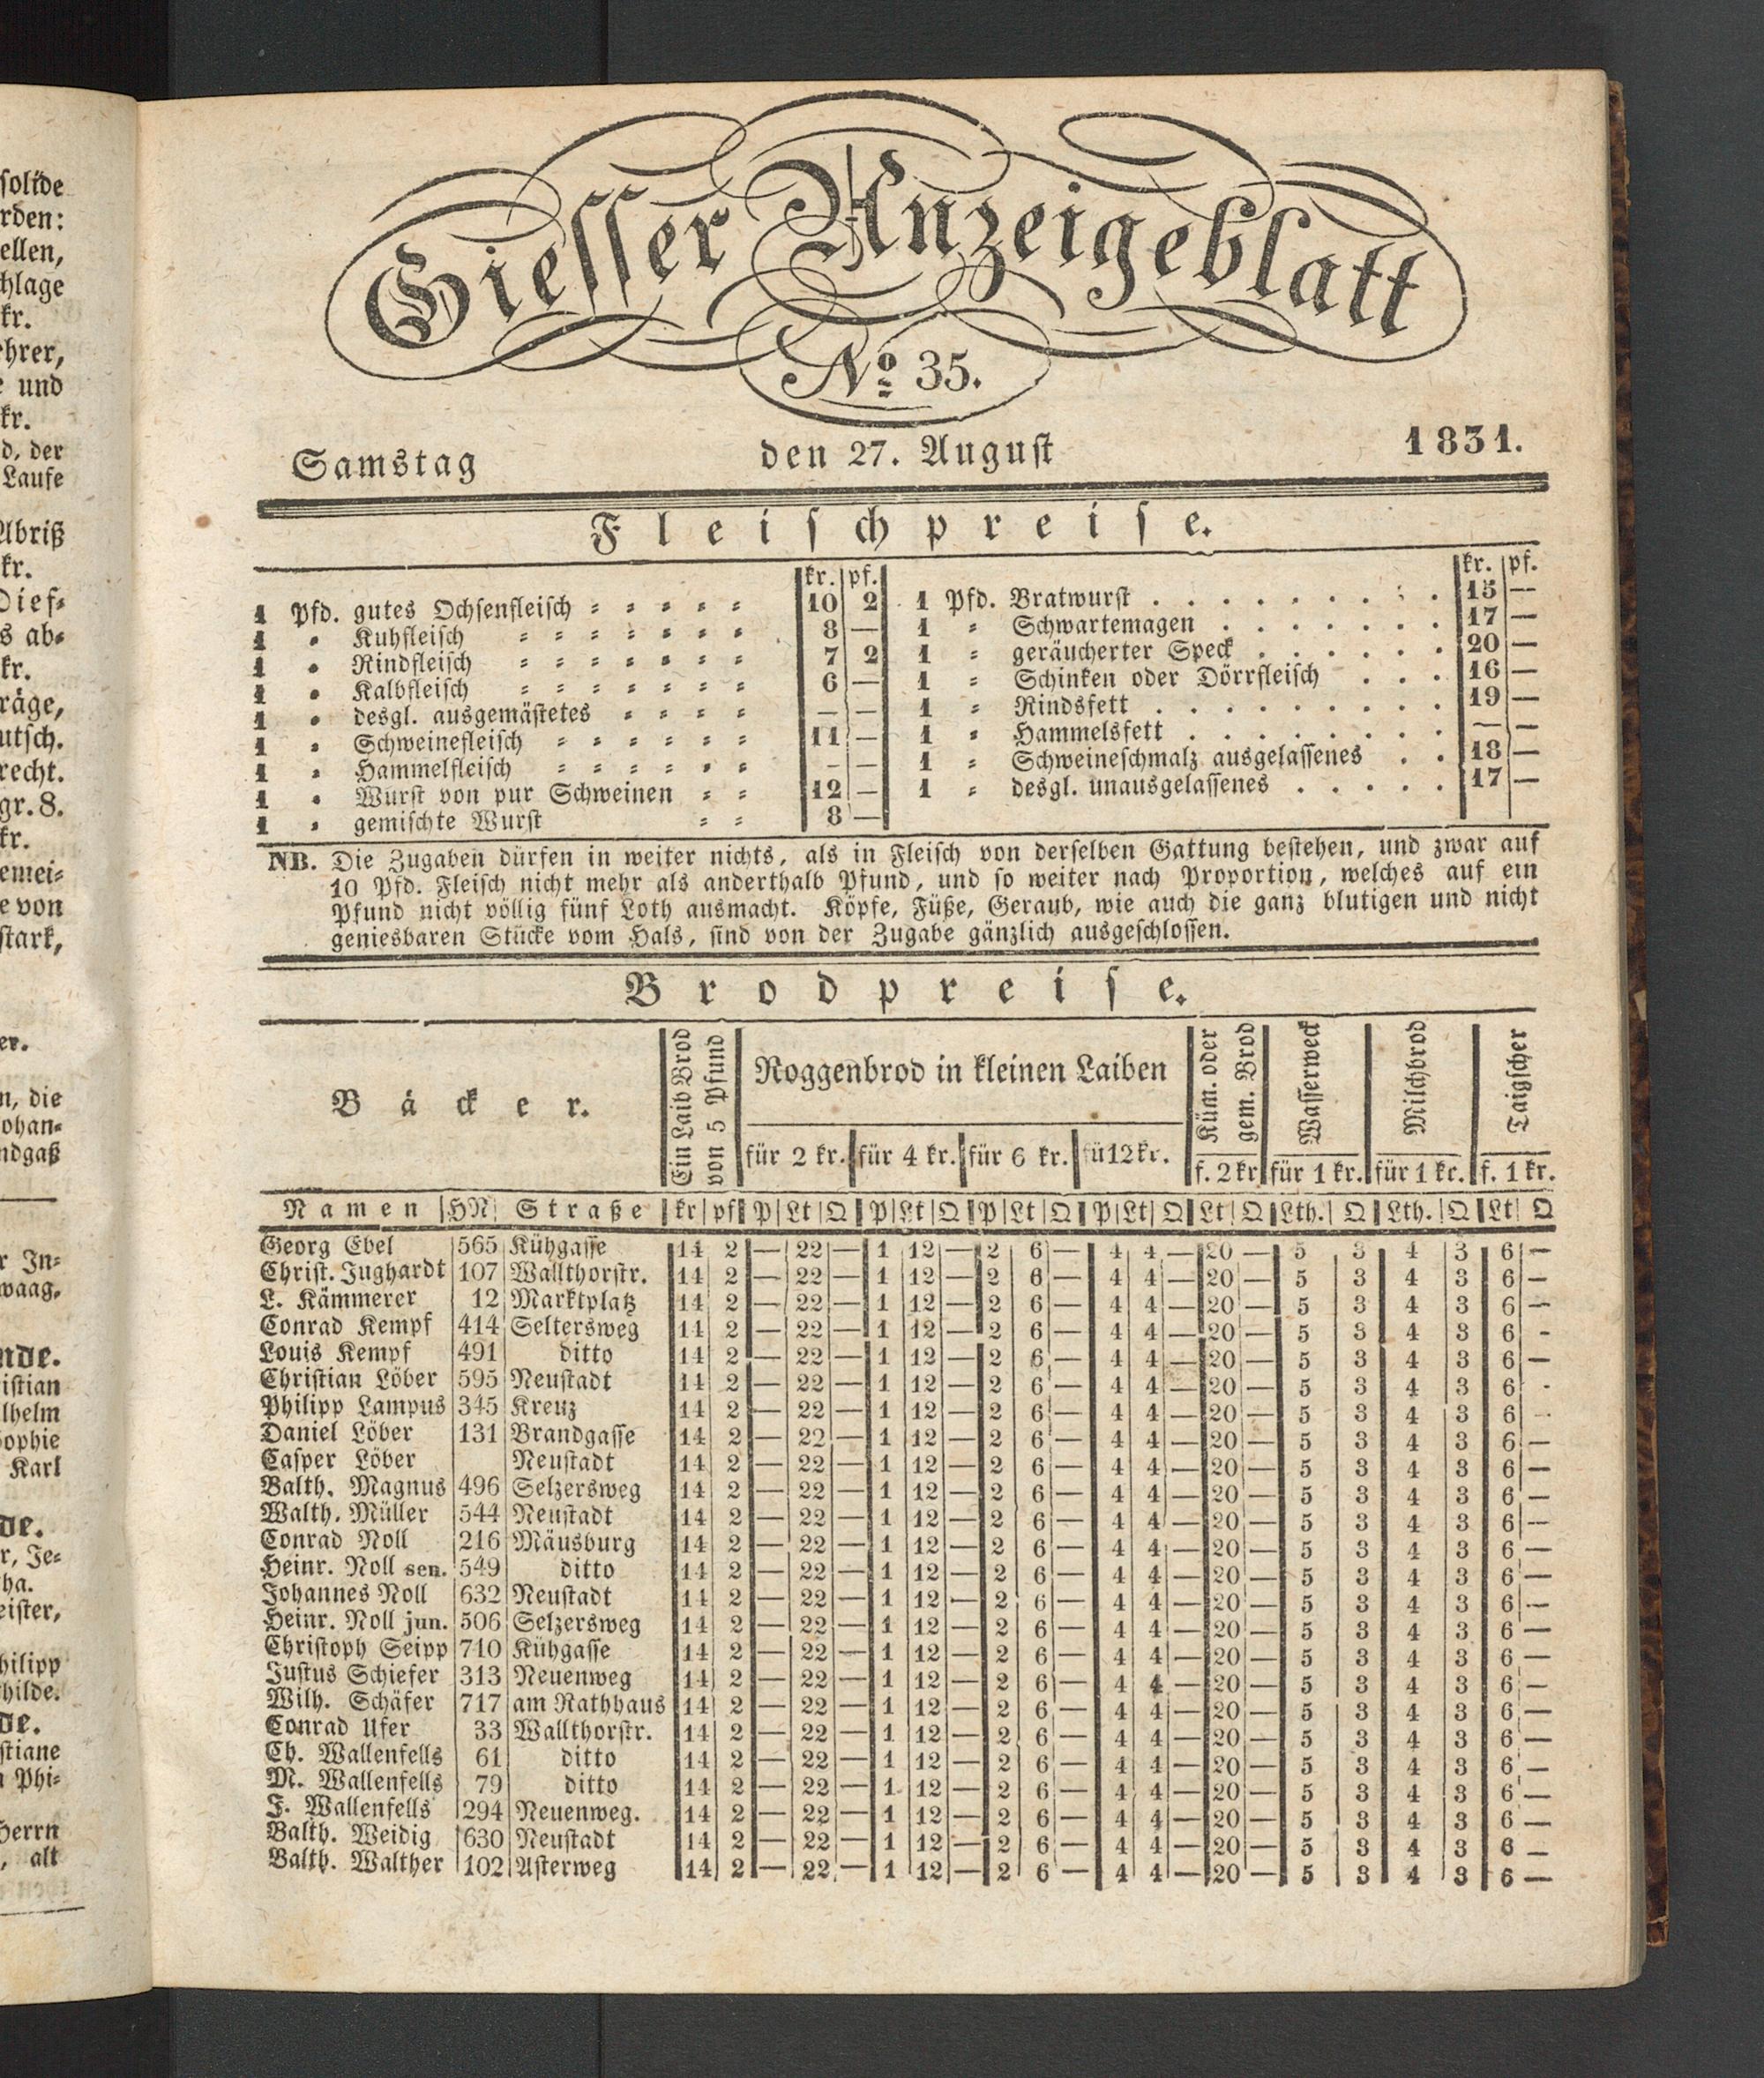 solide
rden:
ellen,
chlage
kr.
ehrer,
e und
kr.
d, der
Laufe
Abriß
kr.
Dief⸗
s ab⸗
kr.
räge,
utsch.
recht.
gr. 8.
kr.
emei⸗
e von
stark,
er.
n, die
ohan⸗
ndgaß
r In⸗
waag.
nde.
istian
lhelm
ophie
Karl
de.
r, Je⸗
ha.
eister,
hilipp
hilde.
de.
stiane
n Phi⸗
Herrn
, alt
Giesser Anzeigeblatt
No 35.
Samstag den 27. August 1831.
Fleischpreise.
kr. pf. kr. pf.
1 Pfd. gutes Ochsenfleisch 10 2 1 Pfd. Bratwurst 15 —
1 " Kuhfleisch 8 — 1 " Schwartemagen 17 —
1 " Rindfleisch 7 2 1 " geräucherter Speck 20 —
1 " Kalbfleisch 6 — 1 " Schinken oder Dörrfleisch 16 —
1 " desgl. ausgemästetes — — 1 " Rindsfett 19 —
1 " Schweinefleisch 11 — 1 " Hammelsfett — —
1 " Hammelfleisch — — 1 " Schweineschmalz ausgelassenes 18 —
1 " Wurst von pur Schweinen 12 — 1 " desgl. unausgelassenes 17 —
1 " gemischte Wurst 8 —
NB. Die Zugaben dürfen in weiter nichts, als in Fleisch von derselben Gattung bestehen, und zwar auf
10 Pfd. Fleisch nicht mehr als anderthalb Pfund, und so weiter nach Proportion, welches auf ein
Pfund nicht völlig fünf Loth ausmacht. Köpfe, Füße, Geraub, wie auch die ganz blutigen und nicht
geniesbaren Stücke vom Hals, sind von der Zugabe gänzlich ausgeschlossen.
Brodpreise.
Bäcker.
Ein Laib Brod
von 5 Pfund
Roggenbrod in kleinen Laiben
Küm. oder
gem. Brod
Wasserweck
Milchbrod
Taigscher
für 2 kr. für 4 kr. für 6 kr. fü12kr. f. 2 kr für 1 kr. für 1 kr. f. 1 kr.
Namen HN Straße kr pf P Lt Ω P Lt Ω P Lt Ω P Lt Ω Lt Ω Lth. Ω Lth. Ω Lt Ω
Georg Ebel 565 Kühgasse 14 2 — 22 — 1 12 — 2 6 — 4 4 — 20 — 5 3 4 3 6 —
Christ. Jughardt 107 Wallthorstr. 14 2 — 22 — 1 12 — 2 6 — 4 4 — 20 — 5 3 4 3 6 —
L. Kämmerer 12 Marktplatz 14 2 — 22 — 1 12 — 2 6 — 4 4 — 20 — 5 3 4 3 6 —
Conrad Kempf 414 Seltersweg 14 2 — 22 — 1 12 — 2 6 — 4 4 — 20 — 5 3 4 3 6 -
Louis Kempf 491 ditto 14 2 — 22 — 1 12 — 2 6 — 4 4 — 20 — 5 3 4 3 6 —
Christian Löber 595 Neustadt 14 2 — 22 — 1 12 — 2 6 — 4 4 — 20 — 5 3 4 3 6 -
Philipp Lampus 345 Kreuz 14 2 — 22 — 1 12 — 2 6 — 4 4 — 20 — 5 3 4 3 6 —
Daniel Löber 131 Brandgasse 14 2 — 22 — 1 12 — 2 6 — 4 4 — 20 — 5 3 4 3 6 —
Casper Löber Neustadt 14 2 — 22 — 1 12 — 2 6 — 4 4 — 20 — 5 3 4 3 6 —
Balth. Magnus 496 Selzersweg 14 2 — 22 — 1 12 — 2 6 — 4 4 — 20 — 5 3 4 3 6 —
Walth. Müller 544 Neustadt 14 2 — 22 — 1 12 — 2 6 — 4 4 — 20 — 5 3 4 3 6 —
Conrad Noll 216 Mäusburg 14 2 — 22 — 1 12 — 2 6 — 4 4 — 20 — 5 3 4 3 6 —
Heinr. Noll sen. 549 ditto 14 2 — 22 — 1 12 — 2 6 — 4 4 — 20 — 5 3 4 3 6 —
Johannes Noll 632 Neustadt 14 2 — 22 — 1 12 — 2 6 — 4 4 — 20 — 5 3 4 3 6 —
Heinr. Noll jun. 506 Selzersweg 14 2 — 22 — 1 12 — 2 6 — 4 4 — 20 — 5 3 4 3 6 —
Christoph Seipp 710 Kühgasse 14 2 — 22 — 1 12 — 2 6 — 4 4 — 20 — 5 3 4 3 6 —
Justus Schiefer 313 Neuenweg 14 2 — 22 — 1 12 — 2 6 — 4 4 — 20 — 5 3 4 3 6 —
Wilh. Schäfer 717 am Rathhaus 14 2 — 22 — 1 12 — 2 6 — 4 4 — 20 — 5 3 4 3 6 —
Conrad Ufer 33 Wallthorstr. 14 2 — 22 — 1 12 — 2 6 — 4 4 — 20 — 5 3 4 3 6 —
Ch. Wallenfells 61 ditto 14 2 — 22 — 1 12 — 2 6 — 4 4 — 20 — 5 3 4 3 6 —
M. Wallenfells 79 ditto 14 2 — 22 — 1 12 — 2 6 — 4 4 — 20 — 5 3 4 3 6 —
J. Wallenfells 294 Neuenweg. 14 2 — 22 — 1 12 — 2 6 — 4 4 — 20 — 5 3 4 3 6 —
Balth. Weidig 630 Neustadt 14 2 — 22 — 1 12 — 2 6 — 4 4 — 20 — 5 3 4 3 6 —
Balth. Walther 102 Asterweg 14 2 — 22 — 1 12 — 2 6 — 4 4 — 20 — 5 3 4 3 6 —